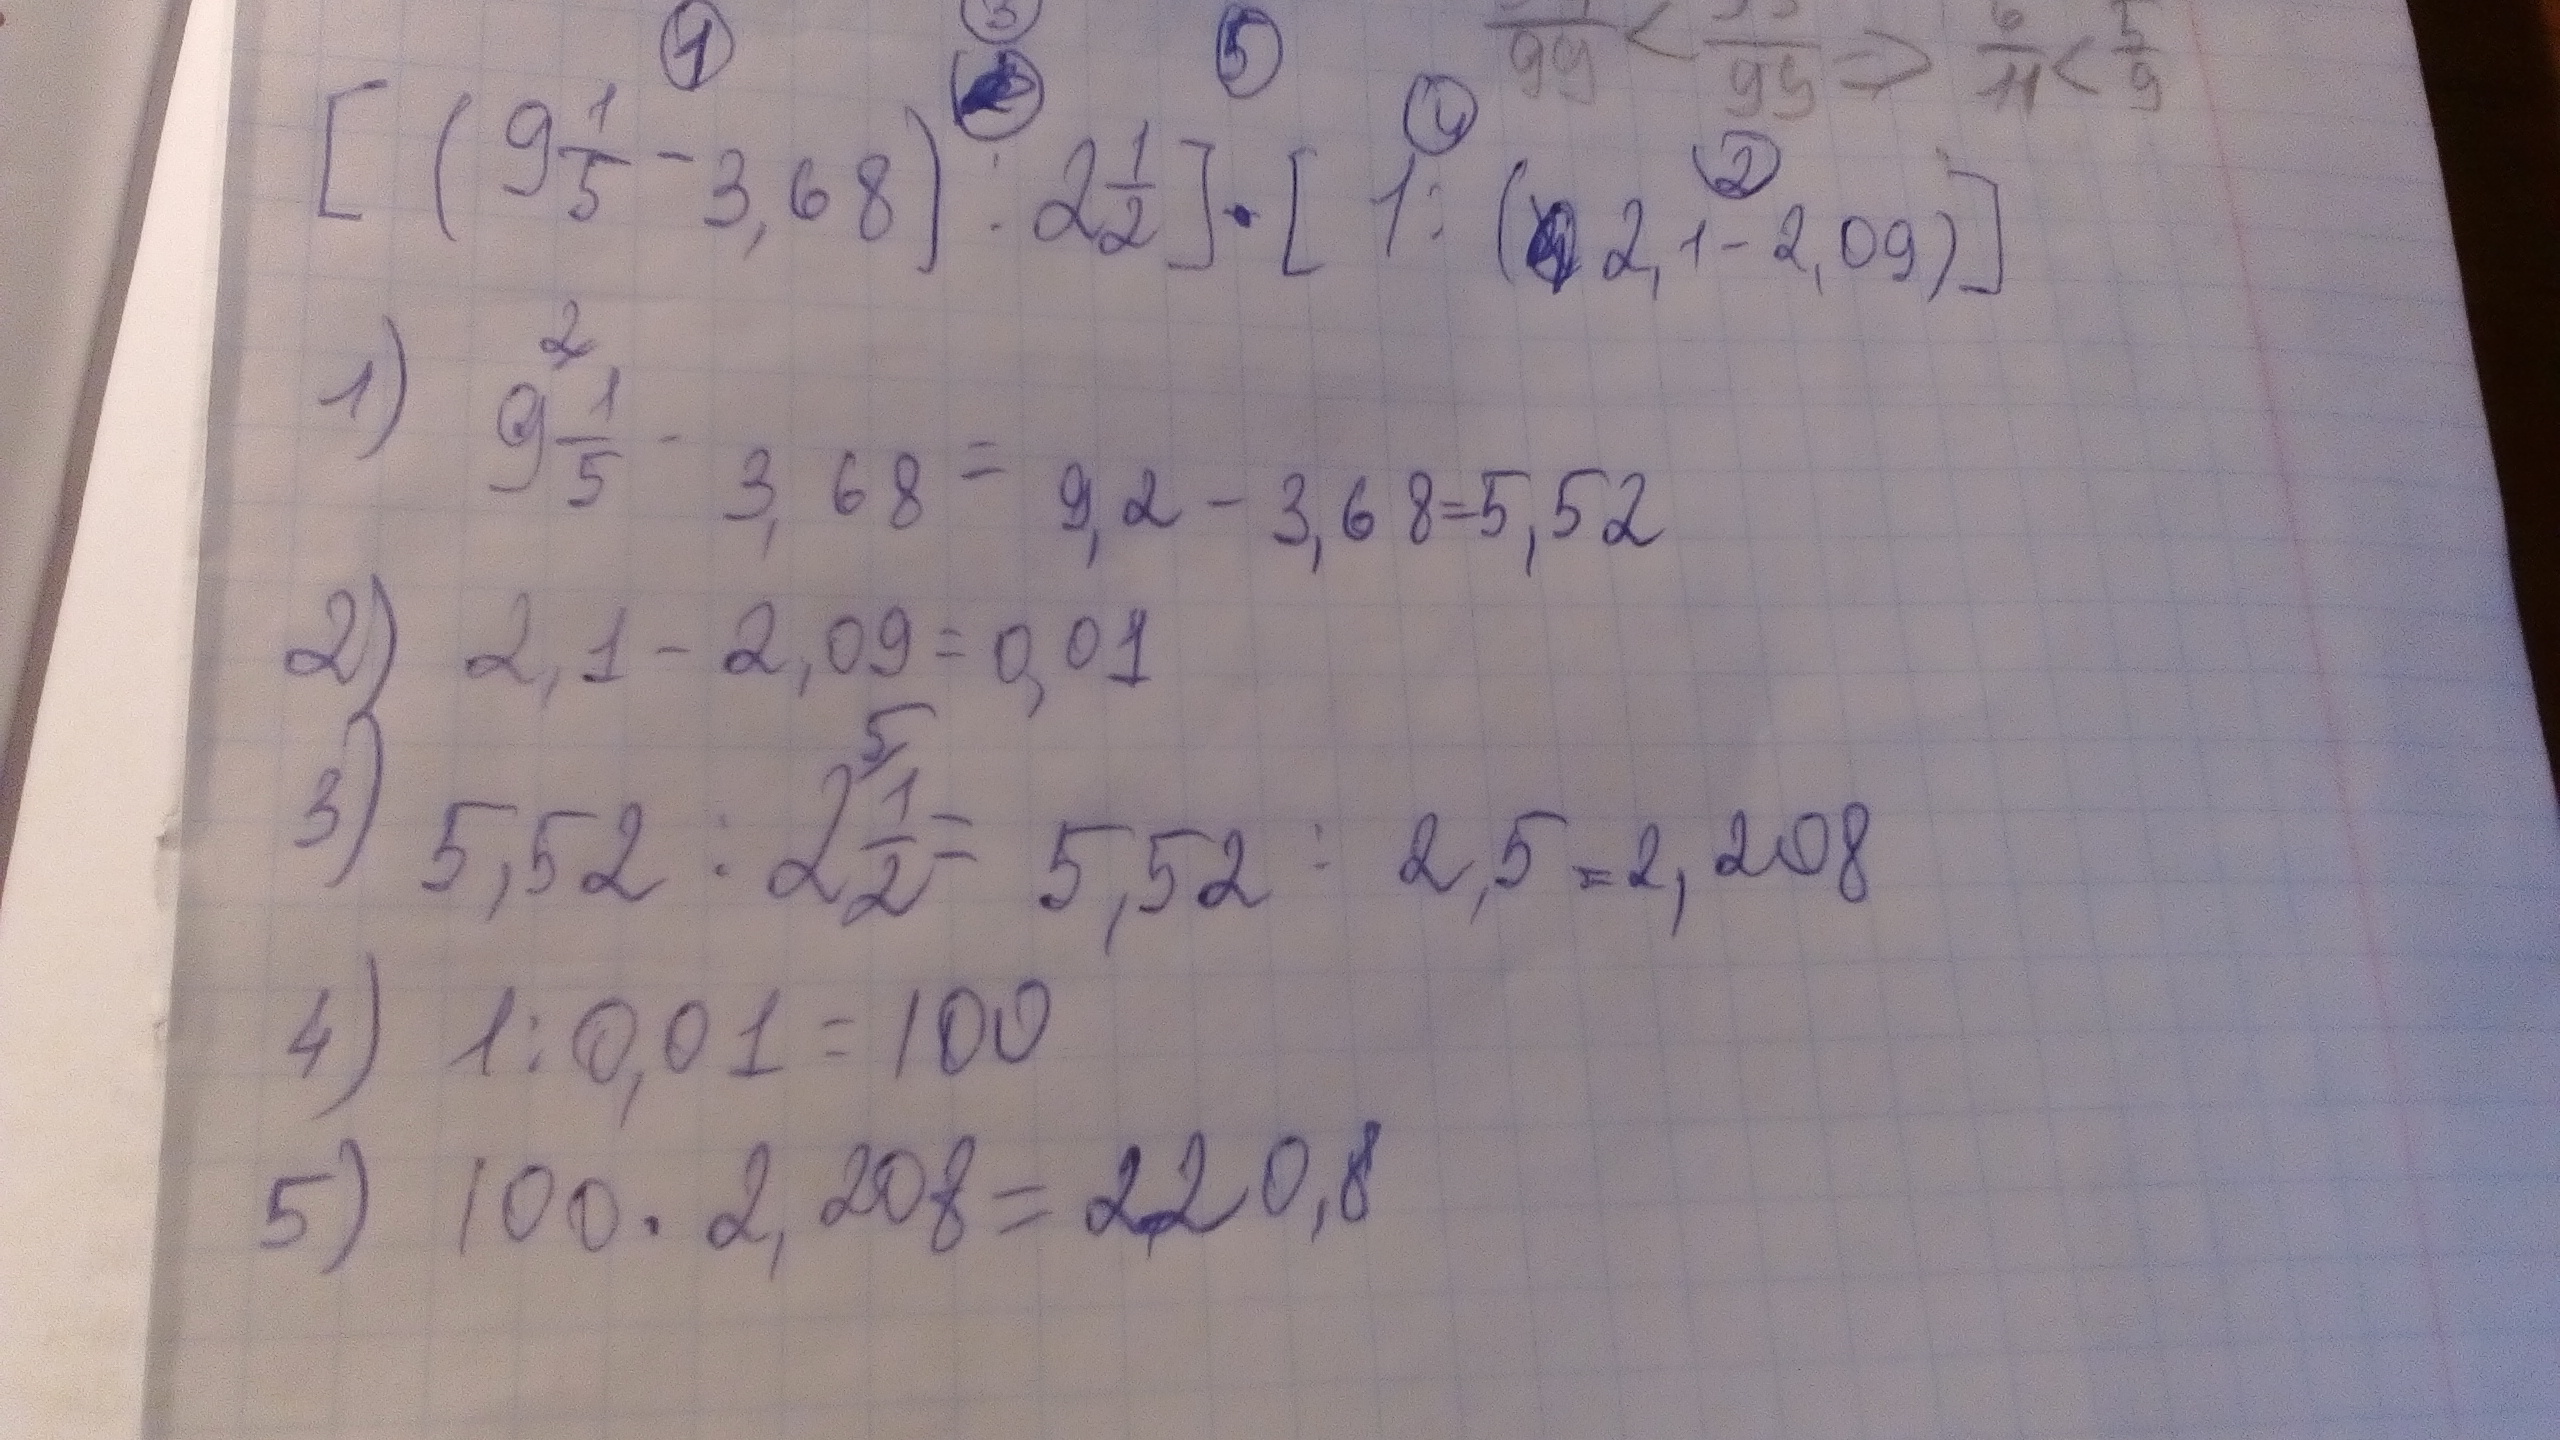 99 < 99 => 6/11 < 5/9
① ③ ⑤ ④ ②
[(9 1/5 - 3,68) : 2 1/2] · [1 : (2,1 - 2,09)]
1) 9 ² 1/5 - 3,68 = 9,2 - 3,68 = 5,52
2) 2,1 - 2,09 = 0,01
3) 5,52 : 2 ⁵ 1/2 = 5,52 : 2,5 = 2,208
4) 1 : 0,01 = 100
5) 100 · 2,208 = 220,8